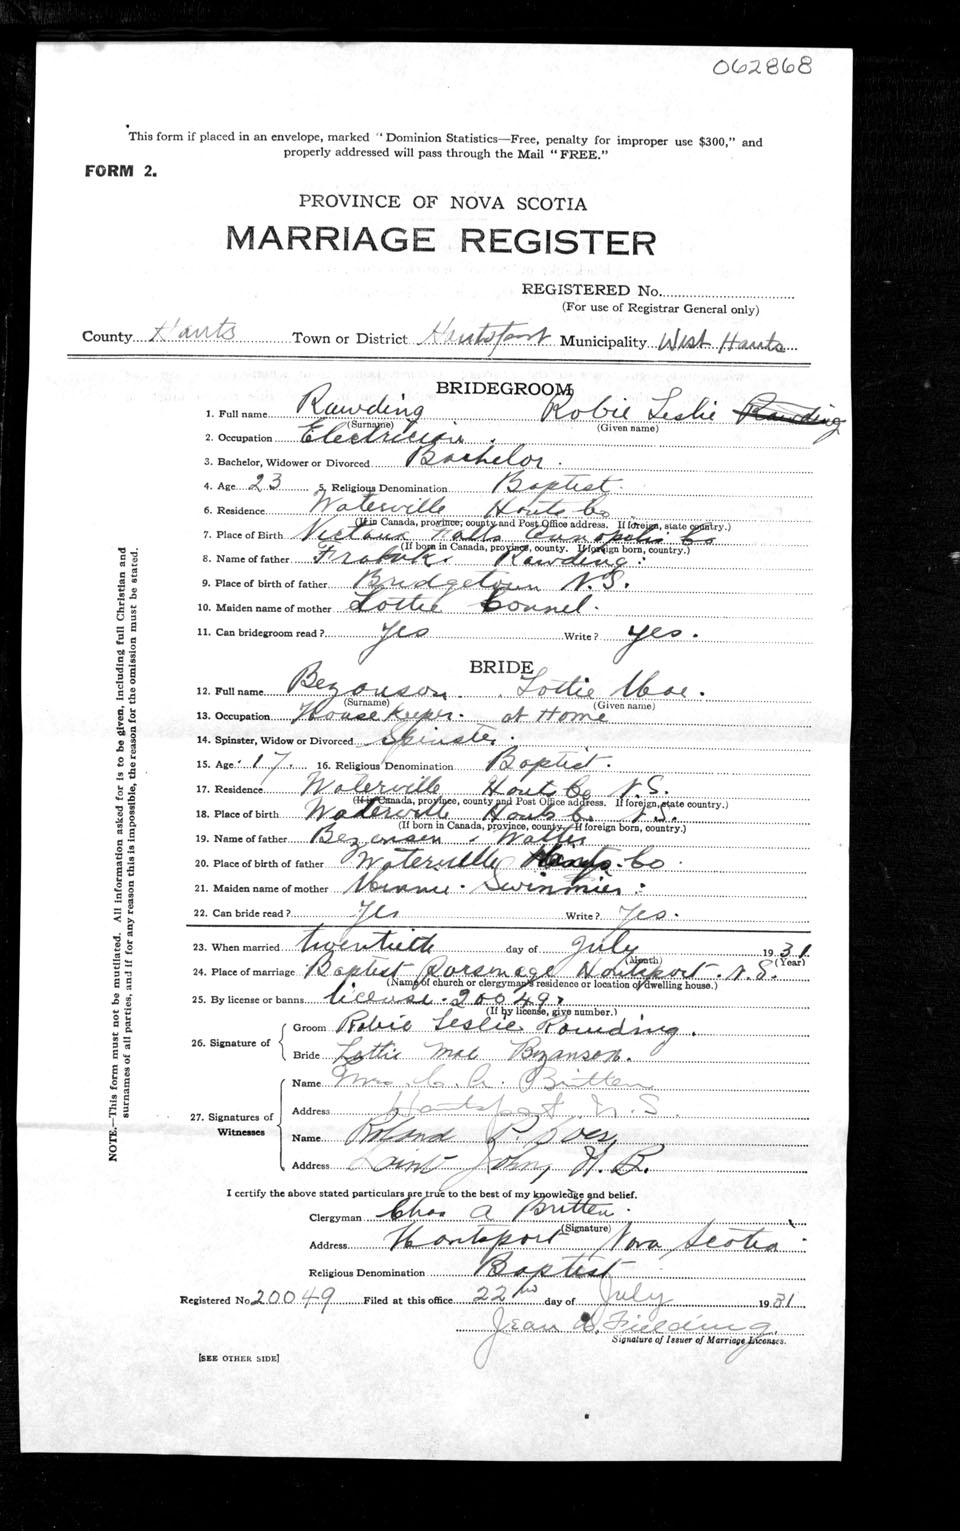 062868
This form if placed in an envelope, marked "Dominion Statistics—Free, penalty for improper use $300," and
properly addressed will pass through the Mail "FREE."
FORM 2.
PROVINCE OF NOVA SCOTIA
MARRIAGE REGISTER
REGISTERED No.
(For use of Registrar General only)
County Hants Town or District Hantsport Municipality West Hants
BRIDEGROOM
1. Full name Rawding Robie Leslie Rawding
(Surname) (Given name)
2. Occupation Electrician.
3. Bachelor, Widower or Divorced Bachelor.
4. Age 23 5. Religious Denomination Baptist.
6. Residence Waterville Hants Co
(If in Canada, province, county and Post Office address. If foreign, state country.)
7. Place of Birth Falls Annapolis Co
(If born in Canada, province, county. If foreign born, country.)
8. Name of father Rawding.
9. Place of birth of father Bridgetown N.S.
10. Maiden name of mother Lottie Connel.
11. Can bridegroom read? yes Write? yes.
BRIDE
12. Full name Bezanson Lottie Mae.
(Surname) (Given name)
13. Occupation Housekeeper. at Home
14. Spinster, Widow or Divorced Spinster.
15. Age 17. 16. Religious Denomination Baptist.
17. Residence Waterville Hants Co N.S.
(If in Canada, province, county and Post Office address. If foreign, state country.)
18. Place of birth Waterville Hants Co N.S.
(If born in Canada, province, county. If foreign born, country.)
19. Name of father Bezanson Walter
20. Place of birth of father Waterville Hants Co.
21. Maiden name of mother Minnie
22. Can bride read? Yes Write? Yes.
23. When married twentieth day of July 1931
(Month) (Year)
24. Place of marriage Baptist Parsonage Hantsport. N.S.
(Name of church or clergyman's residence or location of dwelling house.)
25. By license or banns license. 20049.
(If by license, give number.)
26. Signature of
Groom Robie Leslie Rawding.
Bride Lottie Mae Bezanson.
27. Signatures of
Witnesses
Name Mrs. C. A. Britten
Address Hantsport, N.S.
Name Roland P.
Address Saint John, N.B.
I certify the above stated particulars are true to the best of my knowledge and belief.
Clergyman Chas A Britten.
(Signature)
Address Hantsport Nova Scotia
Religious Denomination Baptist
Registered No. 20049 Filed at this office 22nd day of July 1931
Jean D. Fielding
Signature of Issuer of Marriage Licenses.
[SEE OTHER SIDE]
NOTE.—This form must not be mutilated. All information asked for is to be given, including full Christian and
surnames of all parties, and if for any reason this is impossible, the reason for the omission must be stated.